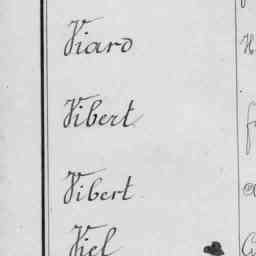 Viard
Vibert
Vibert
Viel